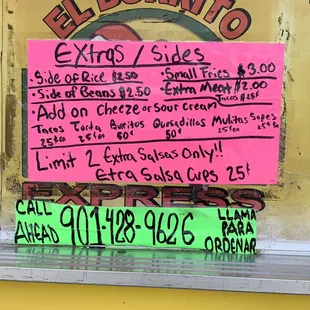 EL BURRITO
EXtras / Sides
·Side of Rice $2.50
·Small Fries $3.00
·Side of Beans $2.50
·Extra Meat $2.00
Tacos 25¢
·Add on Cheeze or Sour Cream
Tacos Torta Buritos Quesadillas Mulitas Sopes
25¢ea 50¢ 50¢ 25¢ea 25¢ea
Limit 2 Extra Salsas Only!!
Extra Salsa Cups 25¢
EXPRESS
CALL AHEAD
901-428-9626
LLAMA PARA ORDENAR